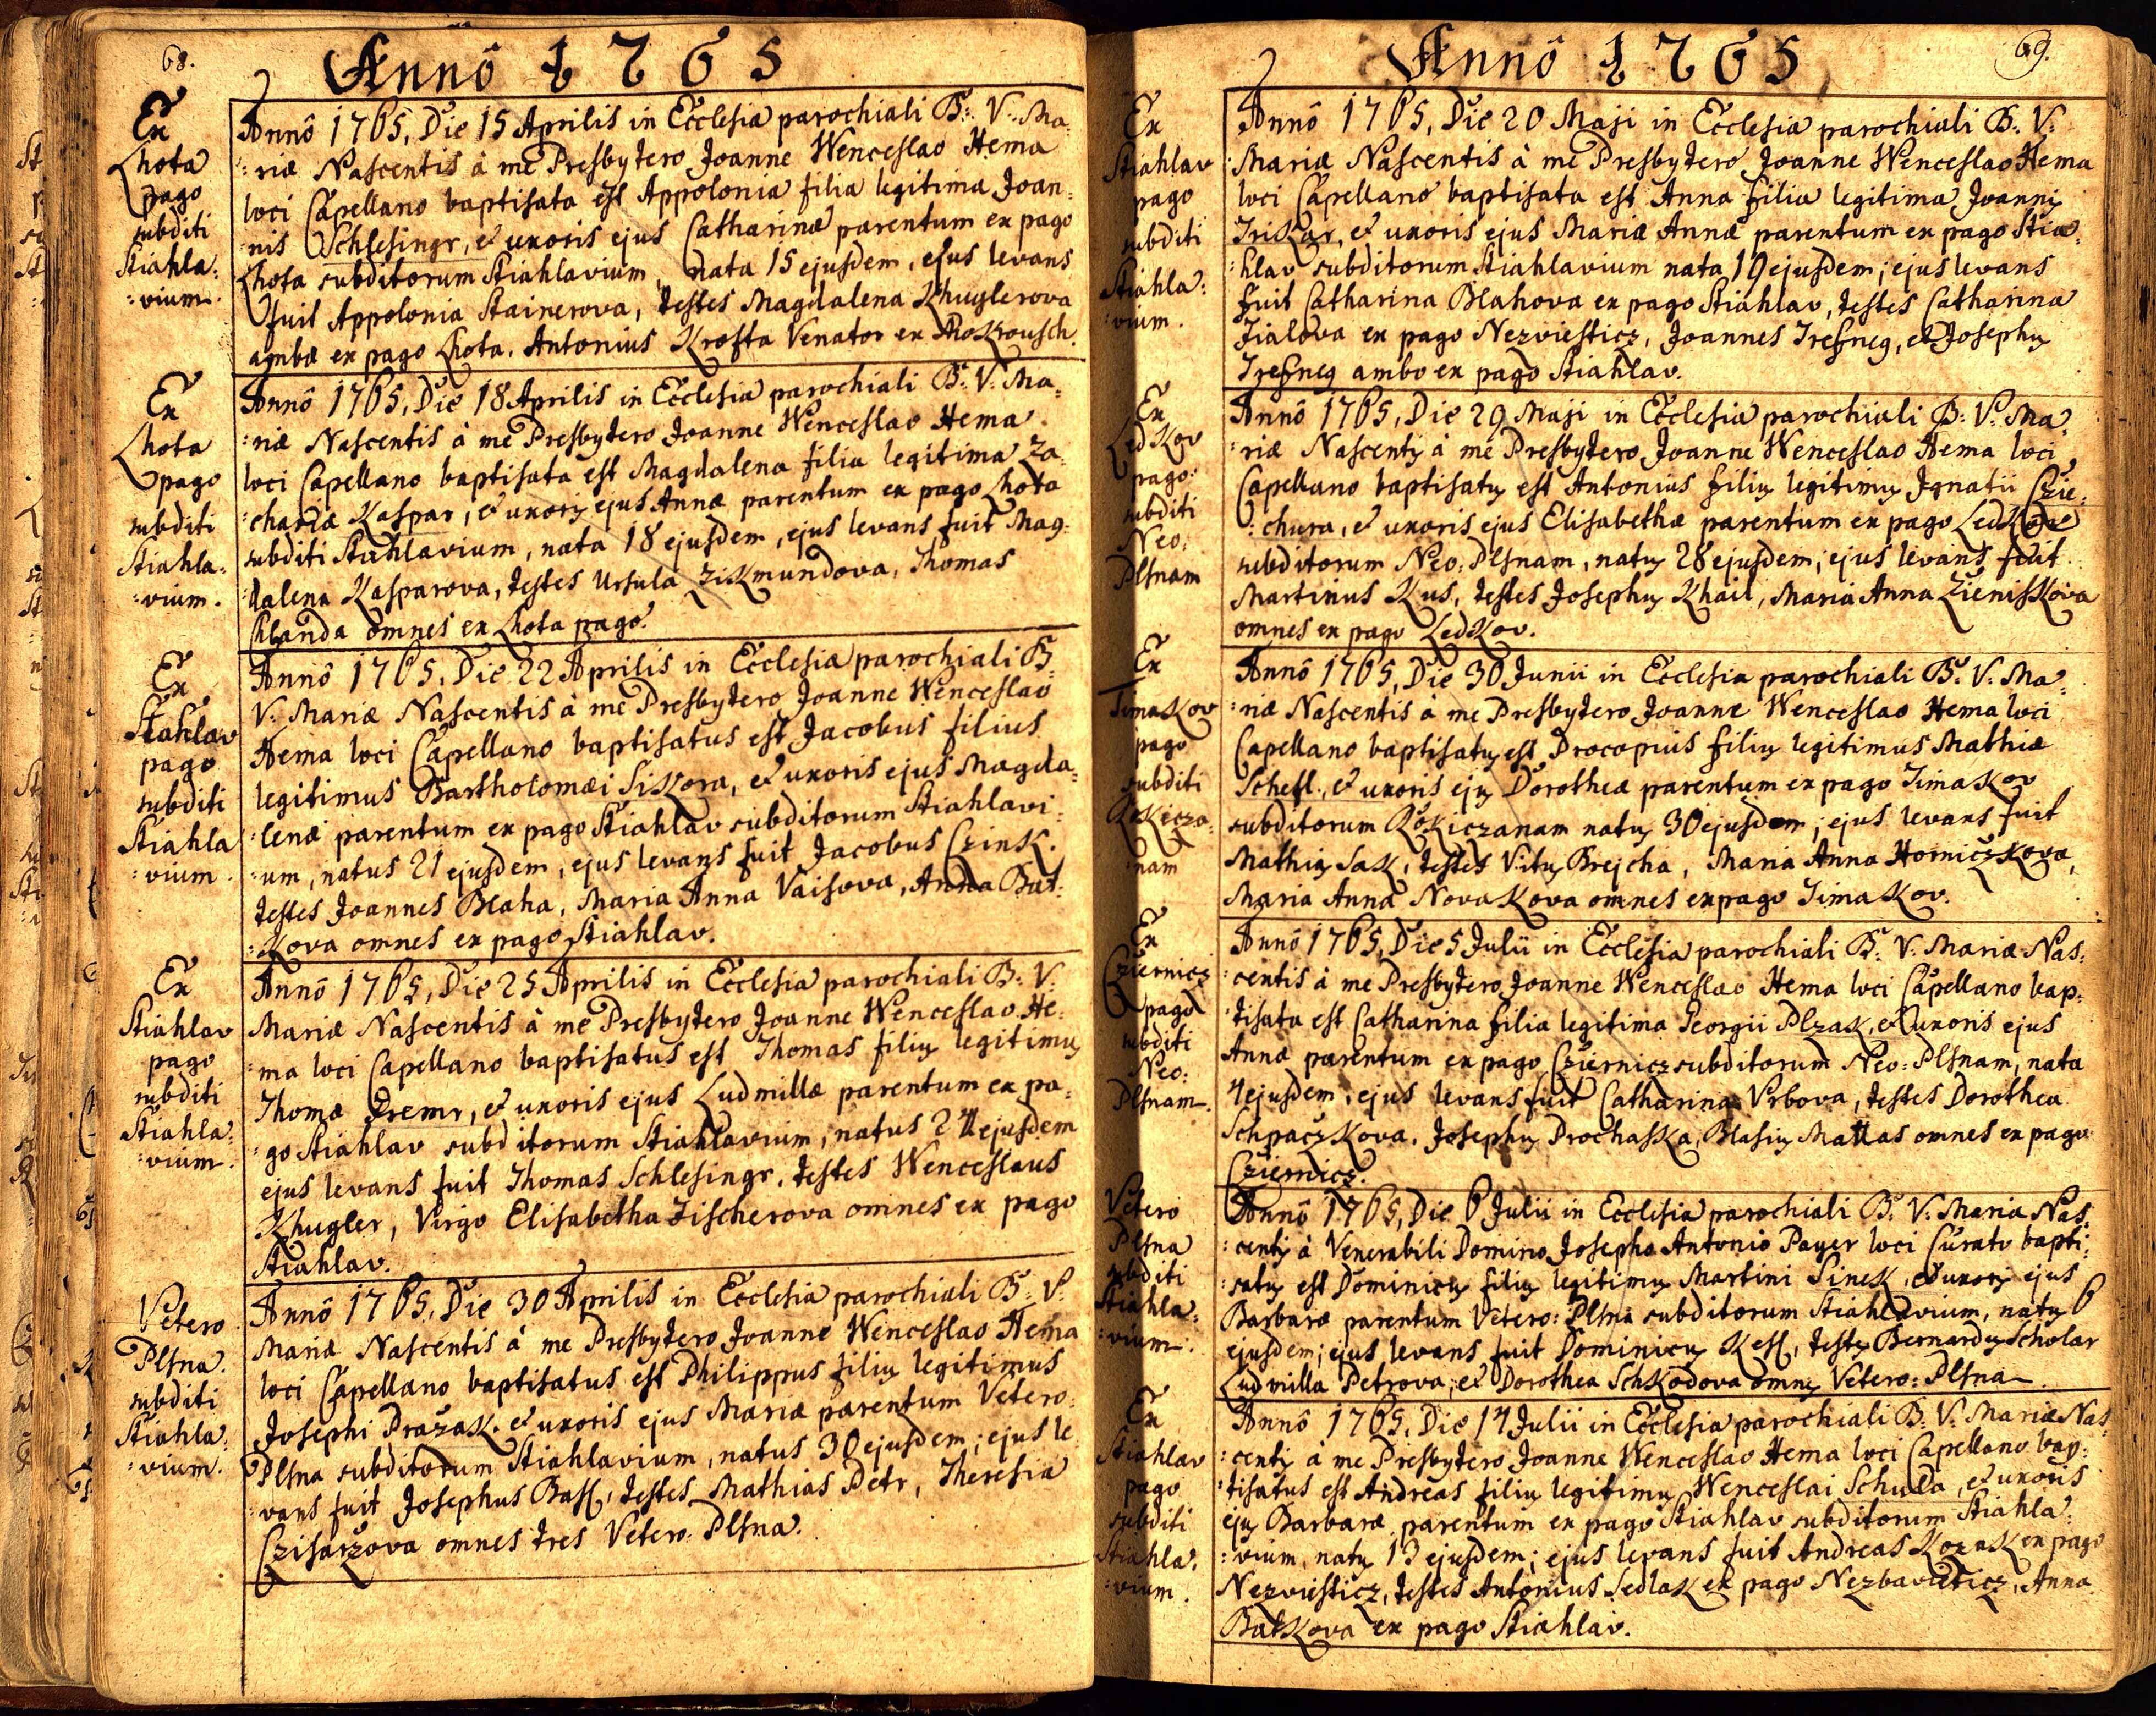 68.
Annô 1765
Ex
Lhota
pago
subditi
Stiahla:
:vium.
Annô 1765, Die 15 Aprilis in Ecclesia parochiali B: V: Ma:
:riæ Nascentis à me Presbytero Joanne Wenceslao Hema
loci Capellano baptisata est Appolonia filia legitima Joan:
:nis Schlesingr, et uxoris ejus Catharinæ parentum ex pago
Lhota subditorum Stiahlavium, nata 15 ejusdem, ejus levans
fuit Appolonia Stainerova, testes Magdalena Khuglerova
ambæ ex pago Lhota. Antonius Krofta Venator ex
Ex
Lhota
pago
subditi
Stiahla:
:vium.
Annô 1765, Die 18 Aprilis in Ecclesia parochiali B: V: Ma:
:riæ Nascentis à me Presbytero Joanne Wenceslao Hema
loci Capellano baptisata est Magdalena filia legitima Za:
:chariæ Kaspar, et uxoris ejus Annæ parentum ex pago Lhota
subditi Stiahlavium, nata 18 ejusdem, ejus levans fuit Mag:
:dalena Kasparova, testes Ursula Zikmundova, Thomas
Chlanda omnes ex Lhota pago.
Ex
Stiahlav
pago
subditi
Stiahla
:vium.
Annô 1765, Die 22 Aprilis in Ecclesia parochiali B:
V: Mariæ Nascentis à me Presbytero Joanne Wenceslao
Hema loci Capellano baptisatus est Jacobus filius
legitimus Bartholomæi Sikora, et uxoris ejus Magda:
:lenæ parentum ex pago Stiahlav subditorum Stiahlavi:
:um, natus 21 ejusdem, ejus levans fuit Jacobus Czink.
testes Joannes Blaha, Maria Anna Vaisova, Anna Bat:
:kova omnes ex pago Stiahlav.
Ex
Stiahlav
pago
subditi
Stiahla:
:vium.
Annô 1765, Die 25 Aprilis in Ecclesia parochiali B: V:
Mariæ Nascentis à me Presbytero Joanne Wenceslao He:
:ma loci Capellano baptisatus est Thomas filius legitimus
Thomæ Tremr, et uxoris ejus Ludmillæ parentum ex pa:
:go Stiahlav subditorum Stiahlavium, natus 24 ejusdem
ejus levans fuit Thomas Schlesingr, testes Wenceslaus
Khugler, Virgo Elisabetha Fischerova omnes ex pago
Stiahlav.
Vetero
Plsna.
subditi
Stiahla:
:vium.
Annô 1765, Die 30 Aprilis in Ecclesia parochiali B: V:
Mariæ Nascentis à me Presbytero Joanne Wenceslao Hema
loci Capellano baptisatus est Philippus filius legitimus
Josephi Prazak. et uxoris ejus Mariæ parentum Vetero:
Plsna subditorum Stiahlavium, natus 30 ejusdem; ejus le
:vans fuit Josephus Bass, testes Mathias Petr, Theresia
Czisarzova omnes tres Vetero: Plsna.
69.
Annô 1765
Ex
Stiahlav
pago
subditi
Stiahla:
:vium.
Annô 1765, Die 20 Maji in Ecclesia parochiali B: V:
Mariæ Nascentis à me Presbytero Joanne Wenceslao Hema
loci Capellano baptisata est Anna filia legitima Joannis
Triskar, et uxoris ejus Mariæ Annæ parentum ex pago Stia:
:hlav subditorum Stiahlavium nata 19 ejusdem; ejus levans
fuit Catharina Blahova ex pago Stiahlav, testes Catharina
Fialova ex pago Nezviesticz, Joannes Tresneg, et Josephus
Tresneg ambo ex pago Stiahlav.
Ex
Ledkov
pago
subditi
Neo:
Plsnam
Annô 1765, Die 29 Maji in Ecclesia parochiali B: V: Ma:
:riæ Nascentis à me Presbytero Joanne Wenceslao Hema loci
Capellano baptisatus est Antonius filius legitimus Ignatii Czie:
:chura, et uxoris ejus Elisabethæ parentum ex pago Ledkov
subditorum Neo: Plsnam, natus 28 ejusdem; ejus levans fuit
Martinus Kus, testes Josephus Khail, Maria Anna Zieniskova
omnes ex pago Ledkov.
Ex
Timakov
pago
subditi
Rokicza:
:nam
Annô 1765, Die 30 Junii in Ecclesia parochiali B: V: Ma:
:riæ Nascentis à me Presbytero Joanne Wenceslao Hema loci
Capellano baptisatus est Procopius filius legitimus Mathiæ
Schefl., et uxoris ejus Dorotheæ parentum ex pago Timakov
subditorum Rokiczanam natus 30 ejusdem; ejus levans fuit
Mathias Sak, testes Vitus Brejcha, Maria Anna Horniczkova,
Maria Anna Novakova omnes ex pago Timakov.
Ex
Cziernicz
pago
subditi
Neo:
Plsnam.
Annô 1765, Die 5 Julii in Ecclesia parochiali B: V: Mariæ Nas:
:centis à me Presbytero Joanne Wenceslao Hema loci Capellano bap:
:tisata est Catharina filia legitima Georgii Plzak, et uxoris ejus
Annæ parentum ex pago Cziernicz subditorum Neo: Plsnam, nata
4 ejusdem, ejus levans fuit Catharina Vrbova, testes Dorothea
Schpaczkova. Josephus Prochaska, Blasius Mallas omnes ex pago
Cziernicz.
Vetero
Plsna
subditi
Stiahla:
:vium.
Annô 1765, Die 6 Julii in Ecclesia parochiali B: V: Maria Nas:
:centis à Venerabili Domino Josepho Antonio Payer loci Curato bapti:
:satus est Dominicus filius legitimus Martini Sinek, et uxoris ejus
Barbaræ parentum Vetero: Plsna subditorum Stiahlavium, natus 6
ejusdem; ejus levans fuit Dominicus Kess, testes Bernardus Scholar
Ludmilla Petrova, et Dorothea Schkodova omnes Vetero: Plsna
Ex
Stiahlav
pago
subditi
Stiahla:
:vium.
Annô 1765, Die 14 Julii in Ecclesia parochiali B: V: Mariæ Nas:
:centis à me Presbytero Joanne Wenceslao Hema loci Capellano bap:
:tisatus est Andreas filius legitimus Wenceslai Schuda, et uxoris
ejus Barbaræ parentum ex pago Stiahlav subditorum Stiahla:
:vium, natus 13 ejusdem; ejus levans fuit Andreas Kozak ex pago
Nezviesticz, testes Antonius Sedlak ex pago Nezbavieticz, Anna
Batkova ex pago Stiahlav.